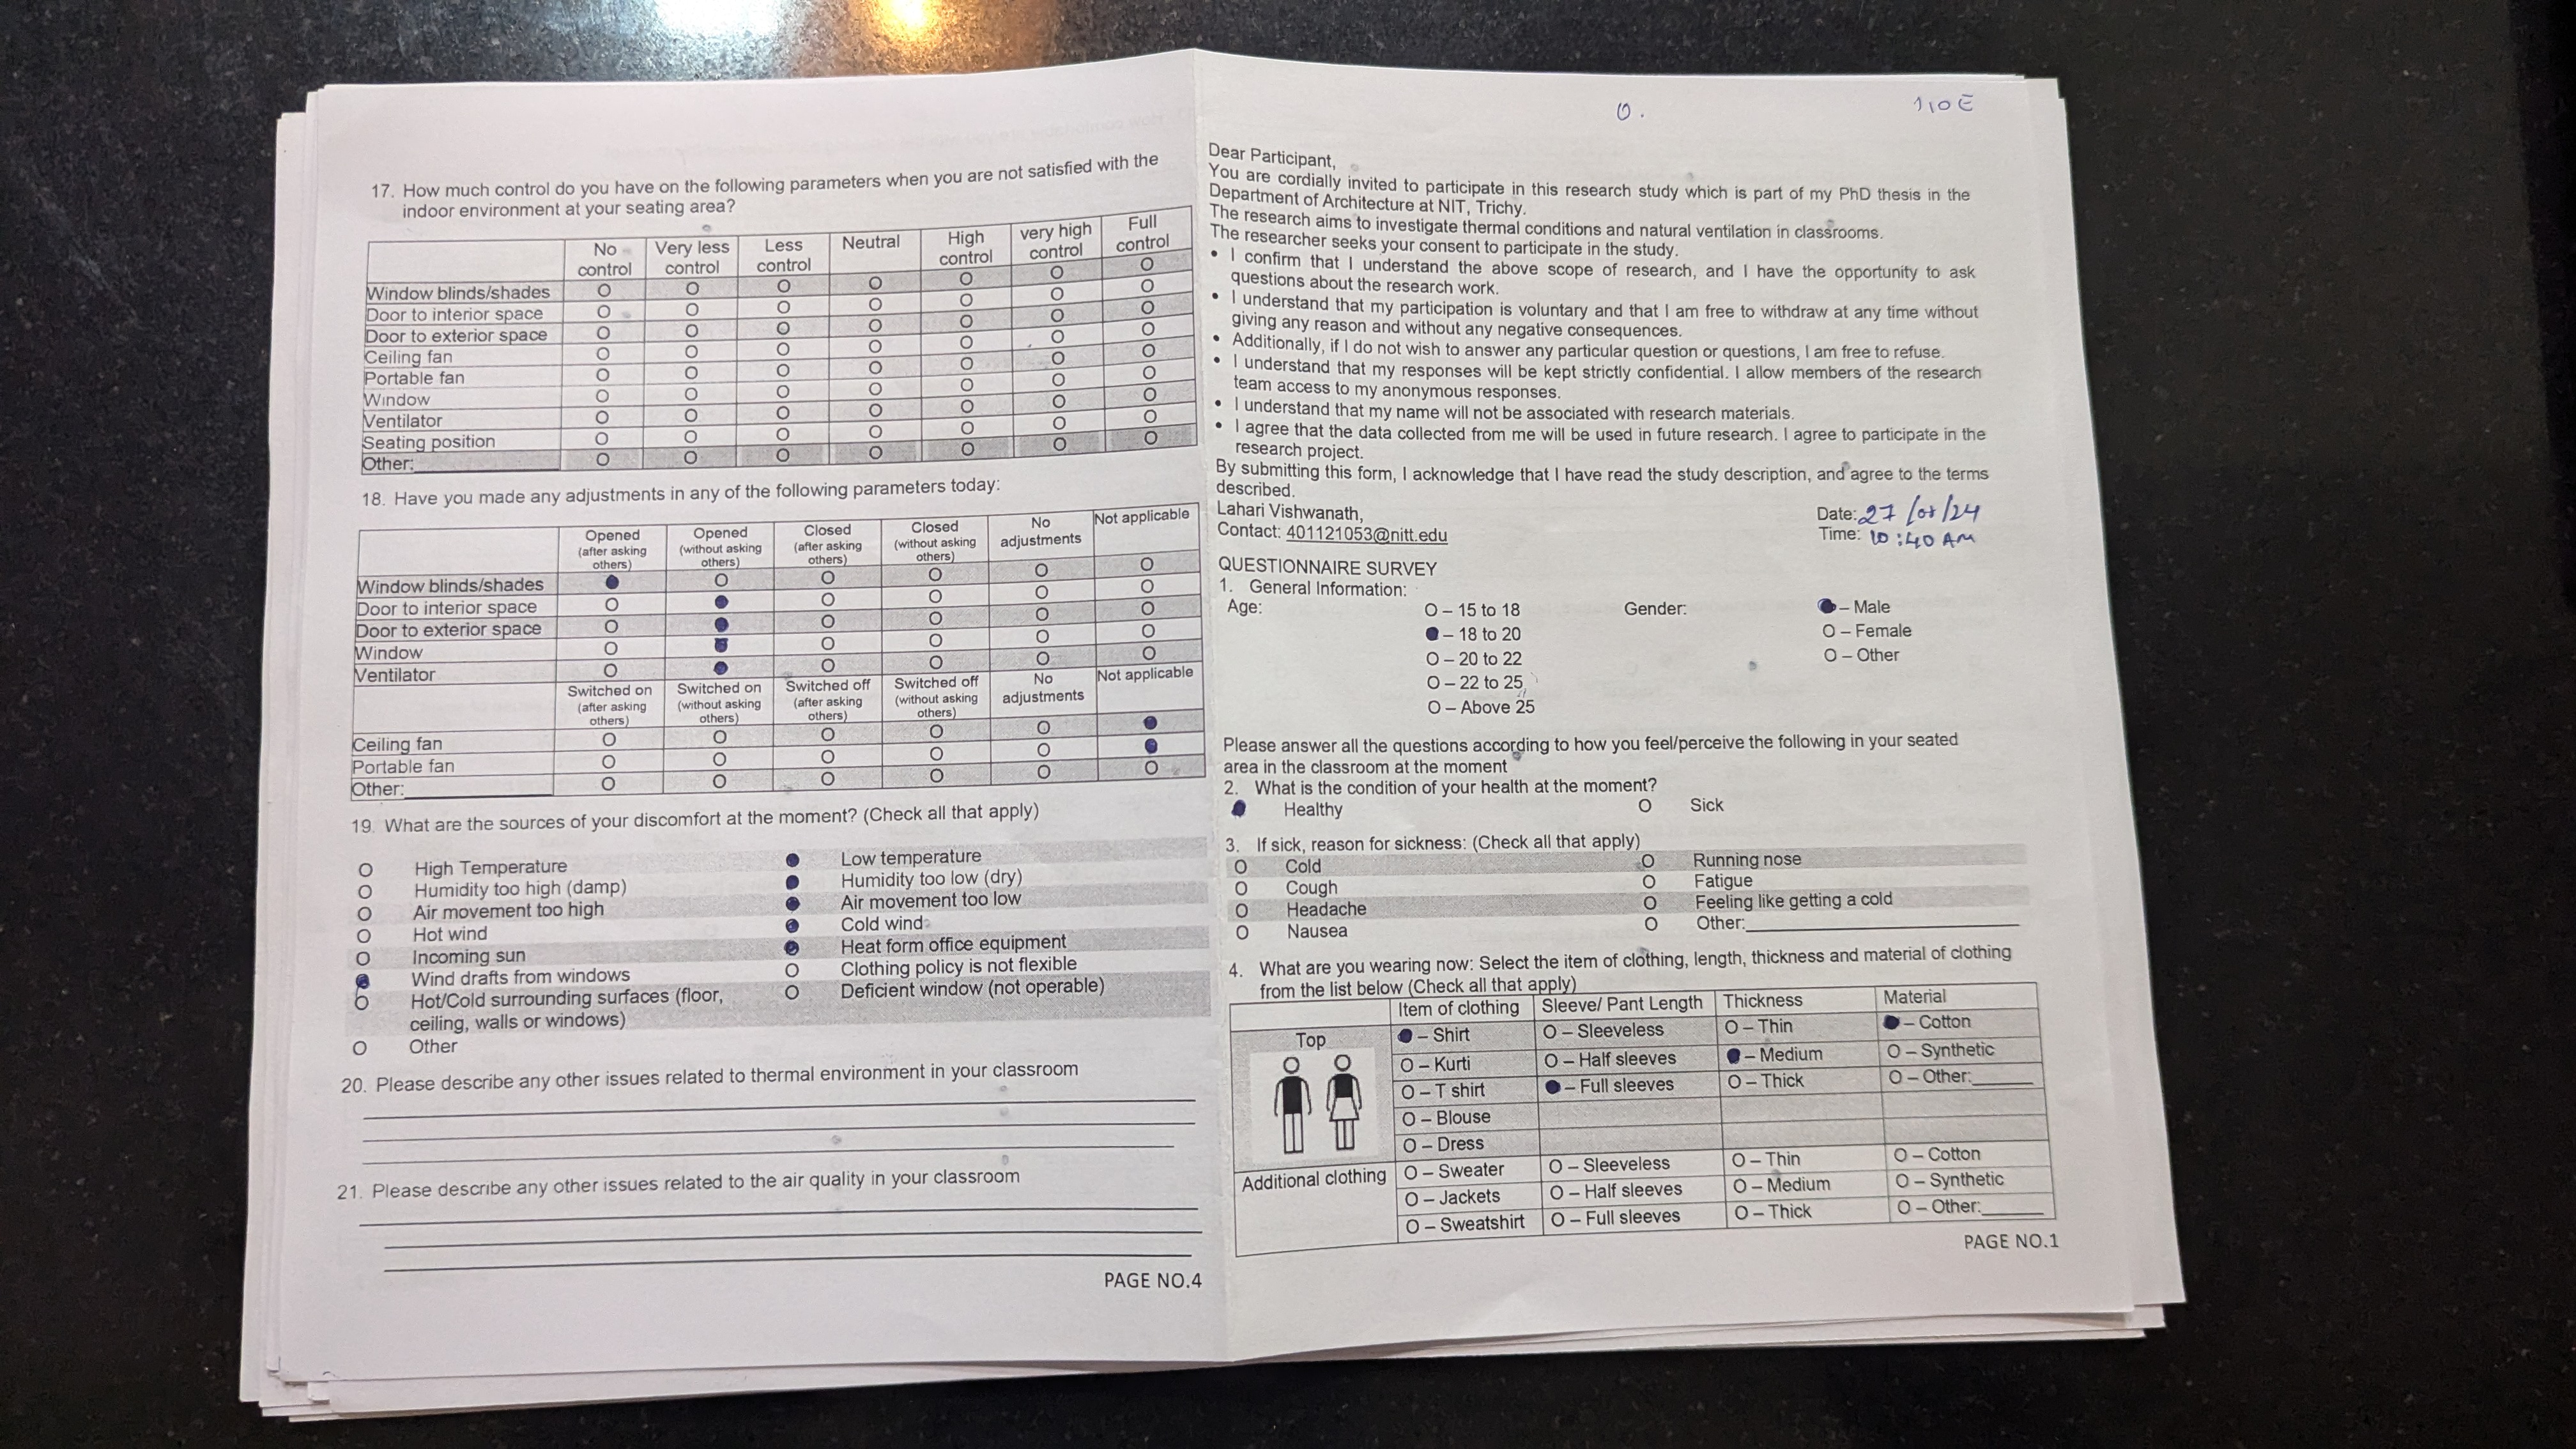 17. How much control do you have on the following parameters when you are not satisfied with the
indoor environment at your seating area?
No control Very less control Less control Neutral High control very high control Full control
Window blinds/shades O O O O O O O
Door to interior space O O O O O O O
Door to exterior space O O O O O O O
Ceiling fan O O O O O O O
Portable fan O O O O O O O
Window O O O O O O O
Ventilator O O O O O O O
Seating position O O O O O O O
Other: O O O O O O O
18. Have you made any adjustments in any of the following parameters today:
Opened (after asking others) Opened (without asking others) Closed (after asking others) Closed (without asking others) No adjustments Not applicable
Window blinds/shades ● O O O O O
Door to interior space O ● O O O O
Door to exterior space O ● O O O O
Window O ● O O O O
Ventilator O ● O O O O
Switched on (after asking others) Switched on (without asking others) Switched off (after asking others) Switched off (without asking others) No adjustments Not applicable
Ceiling fan O O O O O ●
Portable fan O O O O O ●
Other: O O O O O O
19. What are the sources of your discomfort at the moment? (Check all that apply)
O High Temperature ● Low temperature
O Humidity too high (damp) ● Humidity too low (dry)
O Air movement too high ● Air movement too low
O Hot wind ● Cold wind
O Incoming sun ● Heat form office equipment
● Wind drafts from windows O Clothing policy is not flexible
O Hot/Cold surrounding surfaces (floor, O Deficient window (not operable)
ceiling, walls or windows)
O Other
20. Please describe any other issues related to thermal environment in your classroom
21. Please describe any other issues related to the air quality in your classroom
PAGE NO.4
Dear Participant,
You are cordially invited to participate in this research study which is part of my PhD thesis in the
Department of Architecture at NIT, Trichy.
The research aims to investigate thermal conditions and natural ventilation in classrooms.
The researcher seeks your consent to participate in the study.
• I confirm that I understand the above scope of research, and I have the opportunity to ask
questions about the research work.
• I understand that my participation is voluntary and that I am free to withdraw at any time without
giving any reason and without any negative consequences.
• Additionally, if I do not wish to answer any particular question or questions, I am free to refuse.
• I understand that my responses will be kept strictly confidential. I allow members of the research
team access to my anonymous responses.
• I understand that my name will not be associated with research materials.
• I agree that the data collected from me will be used in future research. I agree to participate in the
research project.
By submitting this form, I acknowledge that I have read the study description, and agree to the terms
described.
Lahari Vishwanath, Date:
Contact: 401121053@nitt.edu Time: 10:40 AM
QUESTIONNAIRE SURVEY
1. General Information:
Age: O – 15 to 18 Gender: ● – Male
● – 18 to 20 O – Female
O – 20 to 22 O – Other
O – 22 to 25
O – Above 25
Please answer all the questions according to how you feel/perceive the following in your seated
area in the classroom at the moment
2. What is the condition of your health at the moment?
● Healthy O Sick
3. If sick, reason for sickness: (Check all that apply)
O Cold O Running nose
O Cough O Fatigue
O Headache O Feeling like getting a cold
O Nausea O Other:
4. What are you wearing now: Select the item of clothing, length, thickness and material of clothing
from the list below (Check all that apply)
Item of clothing Sleeve/ Pant Length Thickness Material
Top ● – Shirt O – Sleeveless O – Thin ● – Cotton
O – Kurti O – Half sleeves ● – Medium O – Synthetic
O – T shirt ● – Full sleeves O – Thick O – Other:
O – Blouse
O – Dress
Additional clothing O – Sweater O – Sleeveless O – Thin O – Cotton
O – Jackets O – Half sleeves O – Medium O – Synthetic
O – Sweatshirt O – Full sleeves O – Thick O – Other:
PAGE NO.1